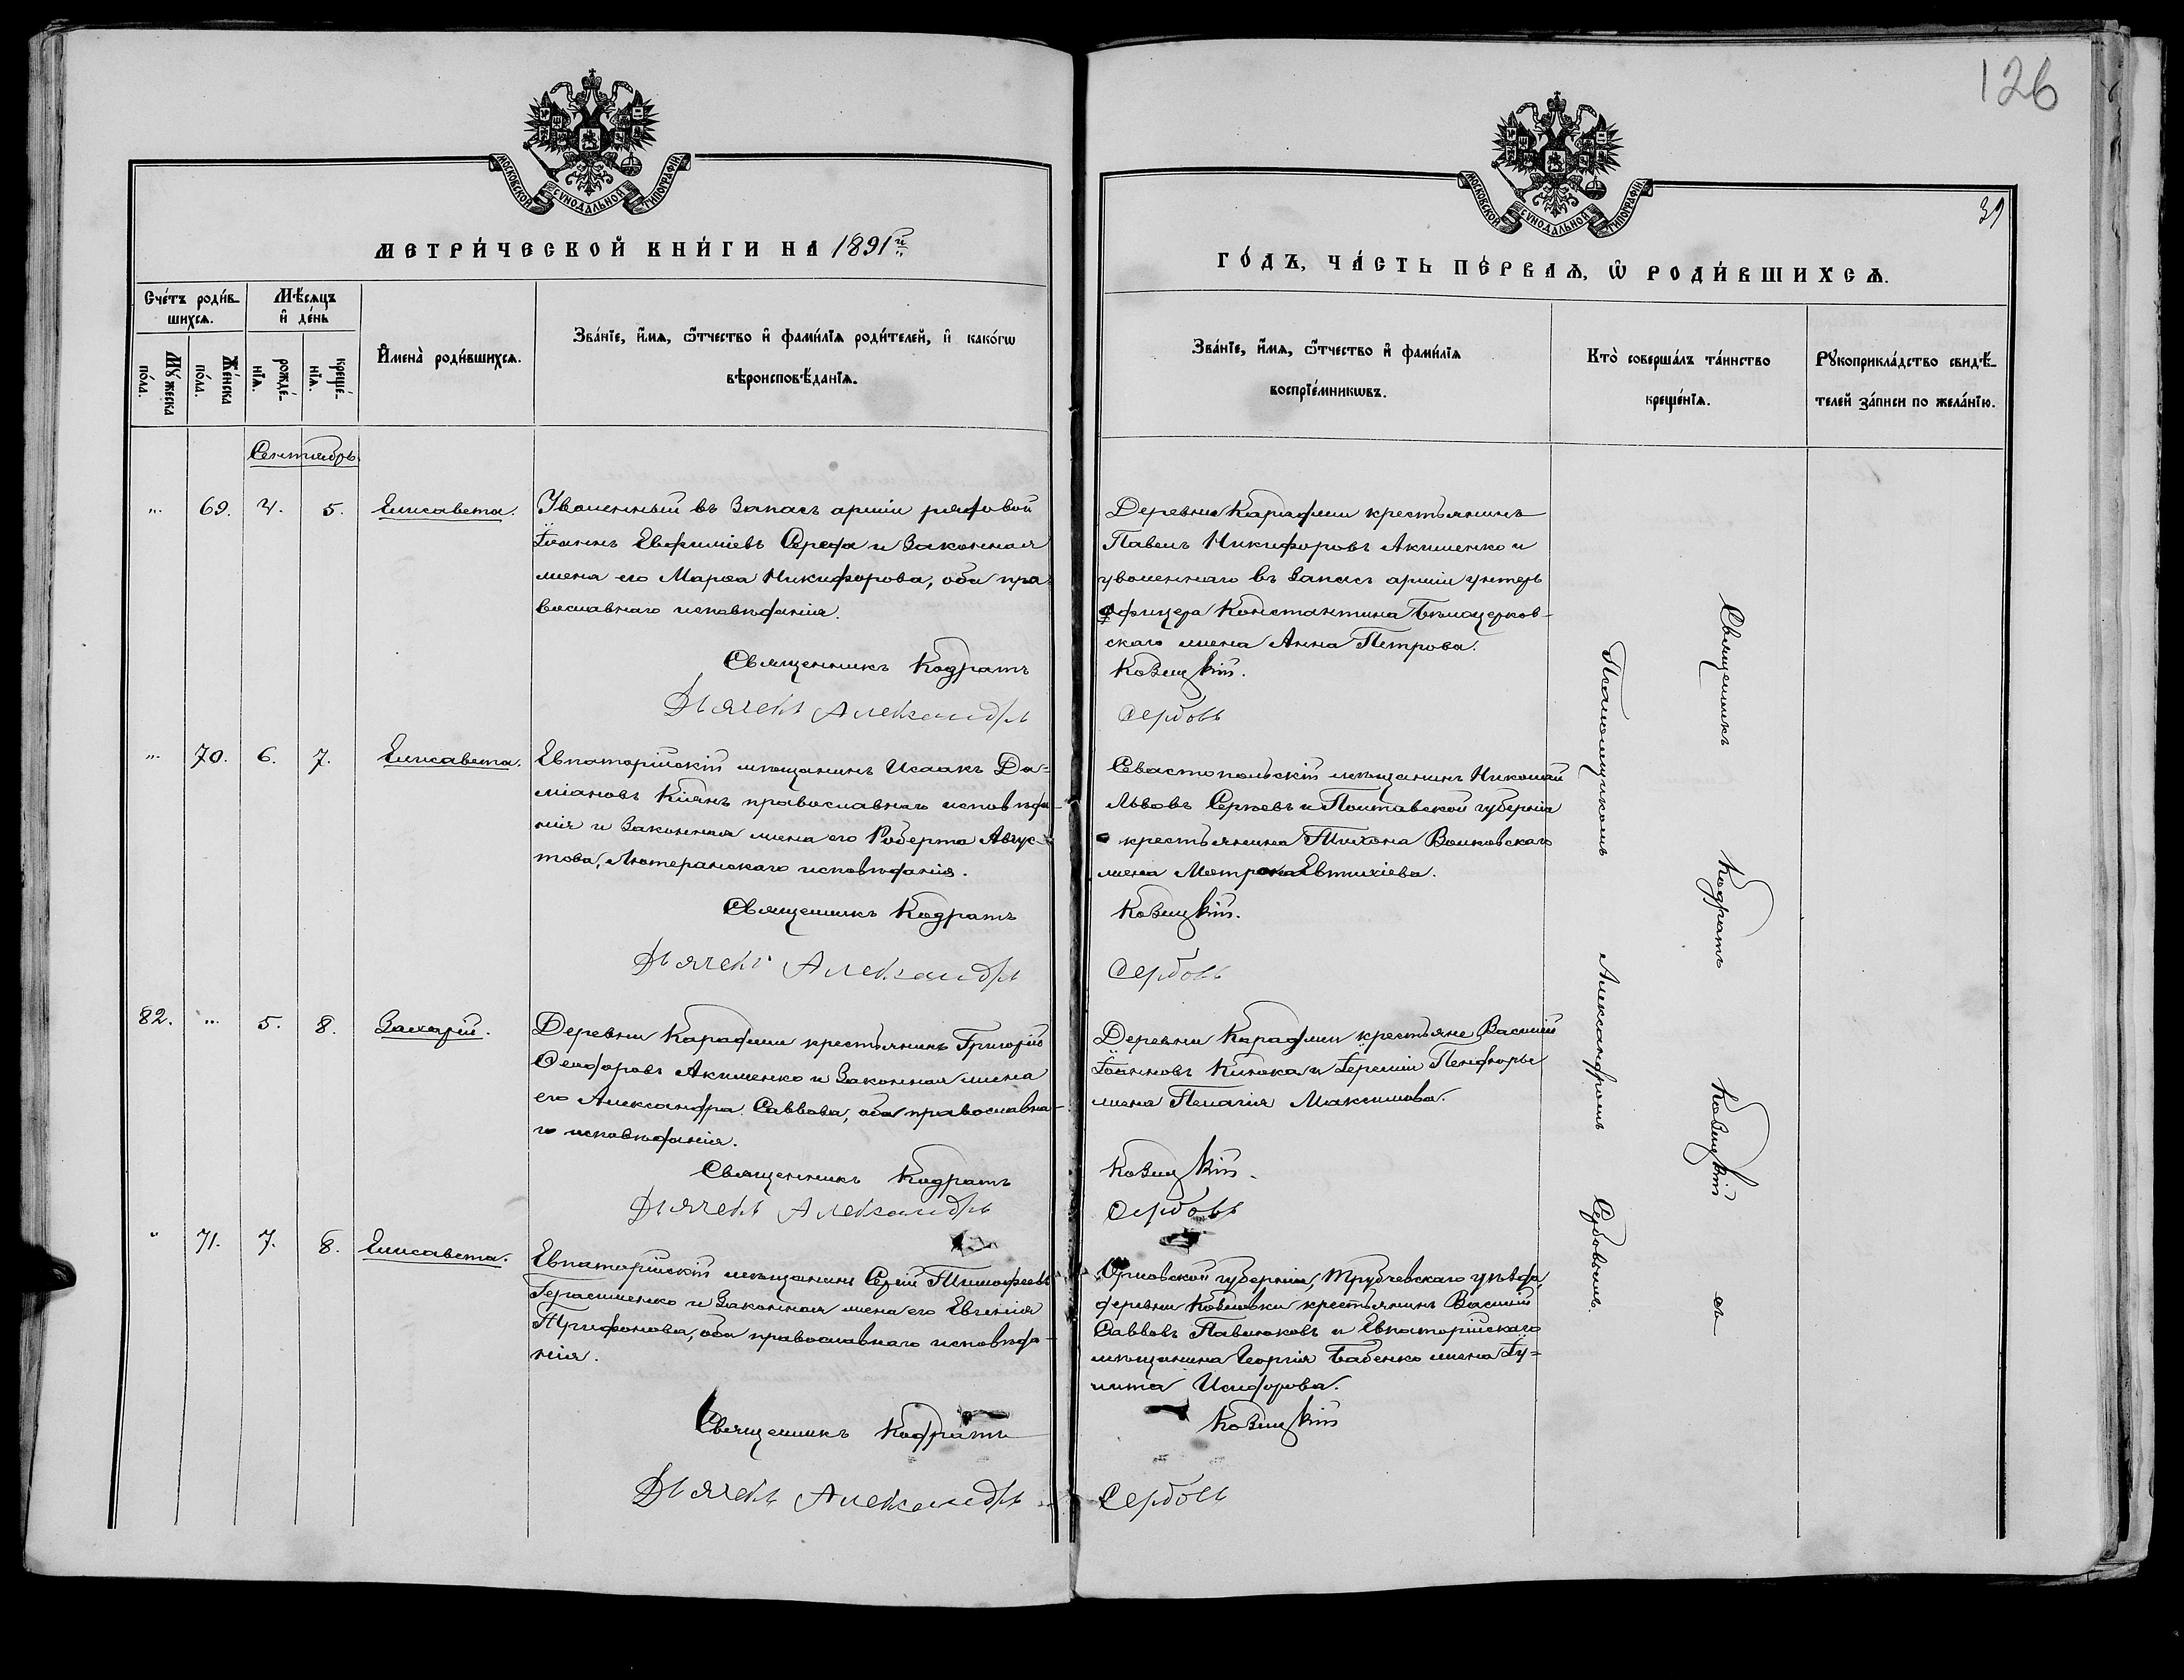 126
МОСКОВСКОЙ СѴНОДАЛЬНОЙ ТИПОГРАФІИ
МОСКОВСКОЙ СѴНОДАЛЬНОЙ ТИПОГРАФІИ
39
МЕТРИ́ЧЕСКОЙ КНИ́ГИ НА 1891й
ГО́ДЪ, ЧА́СТЬ ПЕ́РВАѦ, Ѿ РОДИ́ВШИХСѦ.
Сче́тъ роди́в-
шихсѧ.
Мѣ́сѧцъ
и҆ де́нь
Мꙋ́жеска
по́ла.
Же́нска
по́ла.
рожде́-
нїѧ.
креще́-
нїѧ.
И҆мена̀ роди́вшихсѧ.
Зва́нїе, и҆́мѧ, ѻ҆́тчество и҆ фами́лїѧ роди́телей, и҆ како́гѡ
вѣроисповѣ́данїѧ.
Зва́нїе, и҆́мѧ, ѻ҆́тчество и҆ фами́лїѧ
воспрїе́мникѡвъ.
Кто̀ соверша́лъ та́инство
креще́нїѧ.
Рꙋкоприкла́дство свидѣ́-
телей за́писи по жела́нїю.
Сентябрь.
" 69. 4. 5. Елисавета.
Уволенный въ запасъ арміи рядовой
Іоаннъ Евфиміевъ Середа и законная
жена его Марѳа Никифорова, оба пра-
вославнаго исповѣданія.
Священникъ Кодратъ
Дьячекъ Александръ
Деревни Караджи крестьянинъ
Павелъ Никифоровъ Акименко и
уволеннаго въ запасъ арміи унтеръ
офицера Константина Бѣлоцерков-
скаго жена Анна Петрова.
Козицкій.
Сербовъ
" 70. 6. 7. Елисавета.
Евпаторійскій мѣщанинъ Исаакъ Да-
міановъ Кіянъ православнаго исповѣда-
нія и законная жена его Роберта Авгус-
това, Лютеранскаго исповѣданія.
Священникъ Кодратъ
Дьячекъ Александръ
Севастопольскій мѣщанинъ Николай
Львовъ Сергѣевъ и Полтавской губерніи
крестьянина Тихона Волковскаго
жена Матрона Евтихіева.
Козицкій.
Сербовъ
82. " 5. 8. Захарій.
Деревни Караджи крестьянинъ Григорій
Ѳеодоровъ Акименко и законная жена
его Александра Саввова, оба православна-
го исповѣданія.
Священникъ Кодратъ
Дьячекъ Александръ
Деревни Караджи крестьяне Василій
Іоанновъ и Іереміи
жена Пелагія Максимова.
Козицкій.
Сербовъ
" 71. 7. 8. Елисавета.
Евпаторійскій мѣщанинъ Сергій Тимофеевъ
Герасименко и законная жена его Евгенія
Трифонова, оба православнаго исповѣда-
нія.
Священникъ Кодратъ
Дьячекъ Александръ
Орловской губерніи, Трубчевскаго уѣзда,
деревни крестьянинъ Василій
Саввовъ Павлюковъ и Евпаторійскаго
мѣщанина Георгія Бабенко жена Іу-
литта Исидорова.
Козицкій
Сербовъ
Священникъ Кодратъ Козицкій съ
Псаломщикомъ Александромъ Сербовымъ.